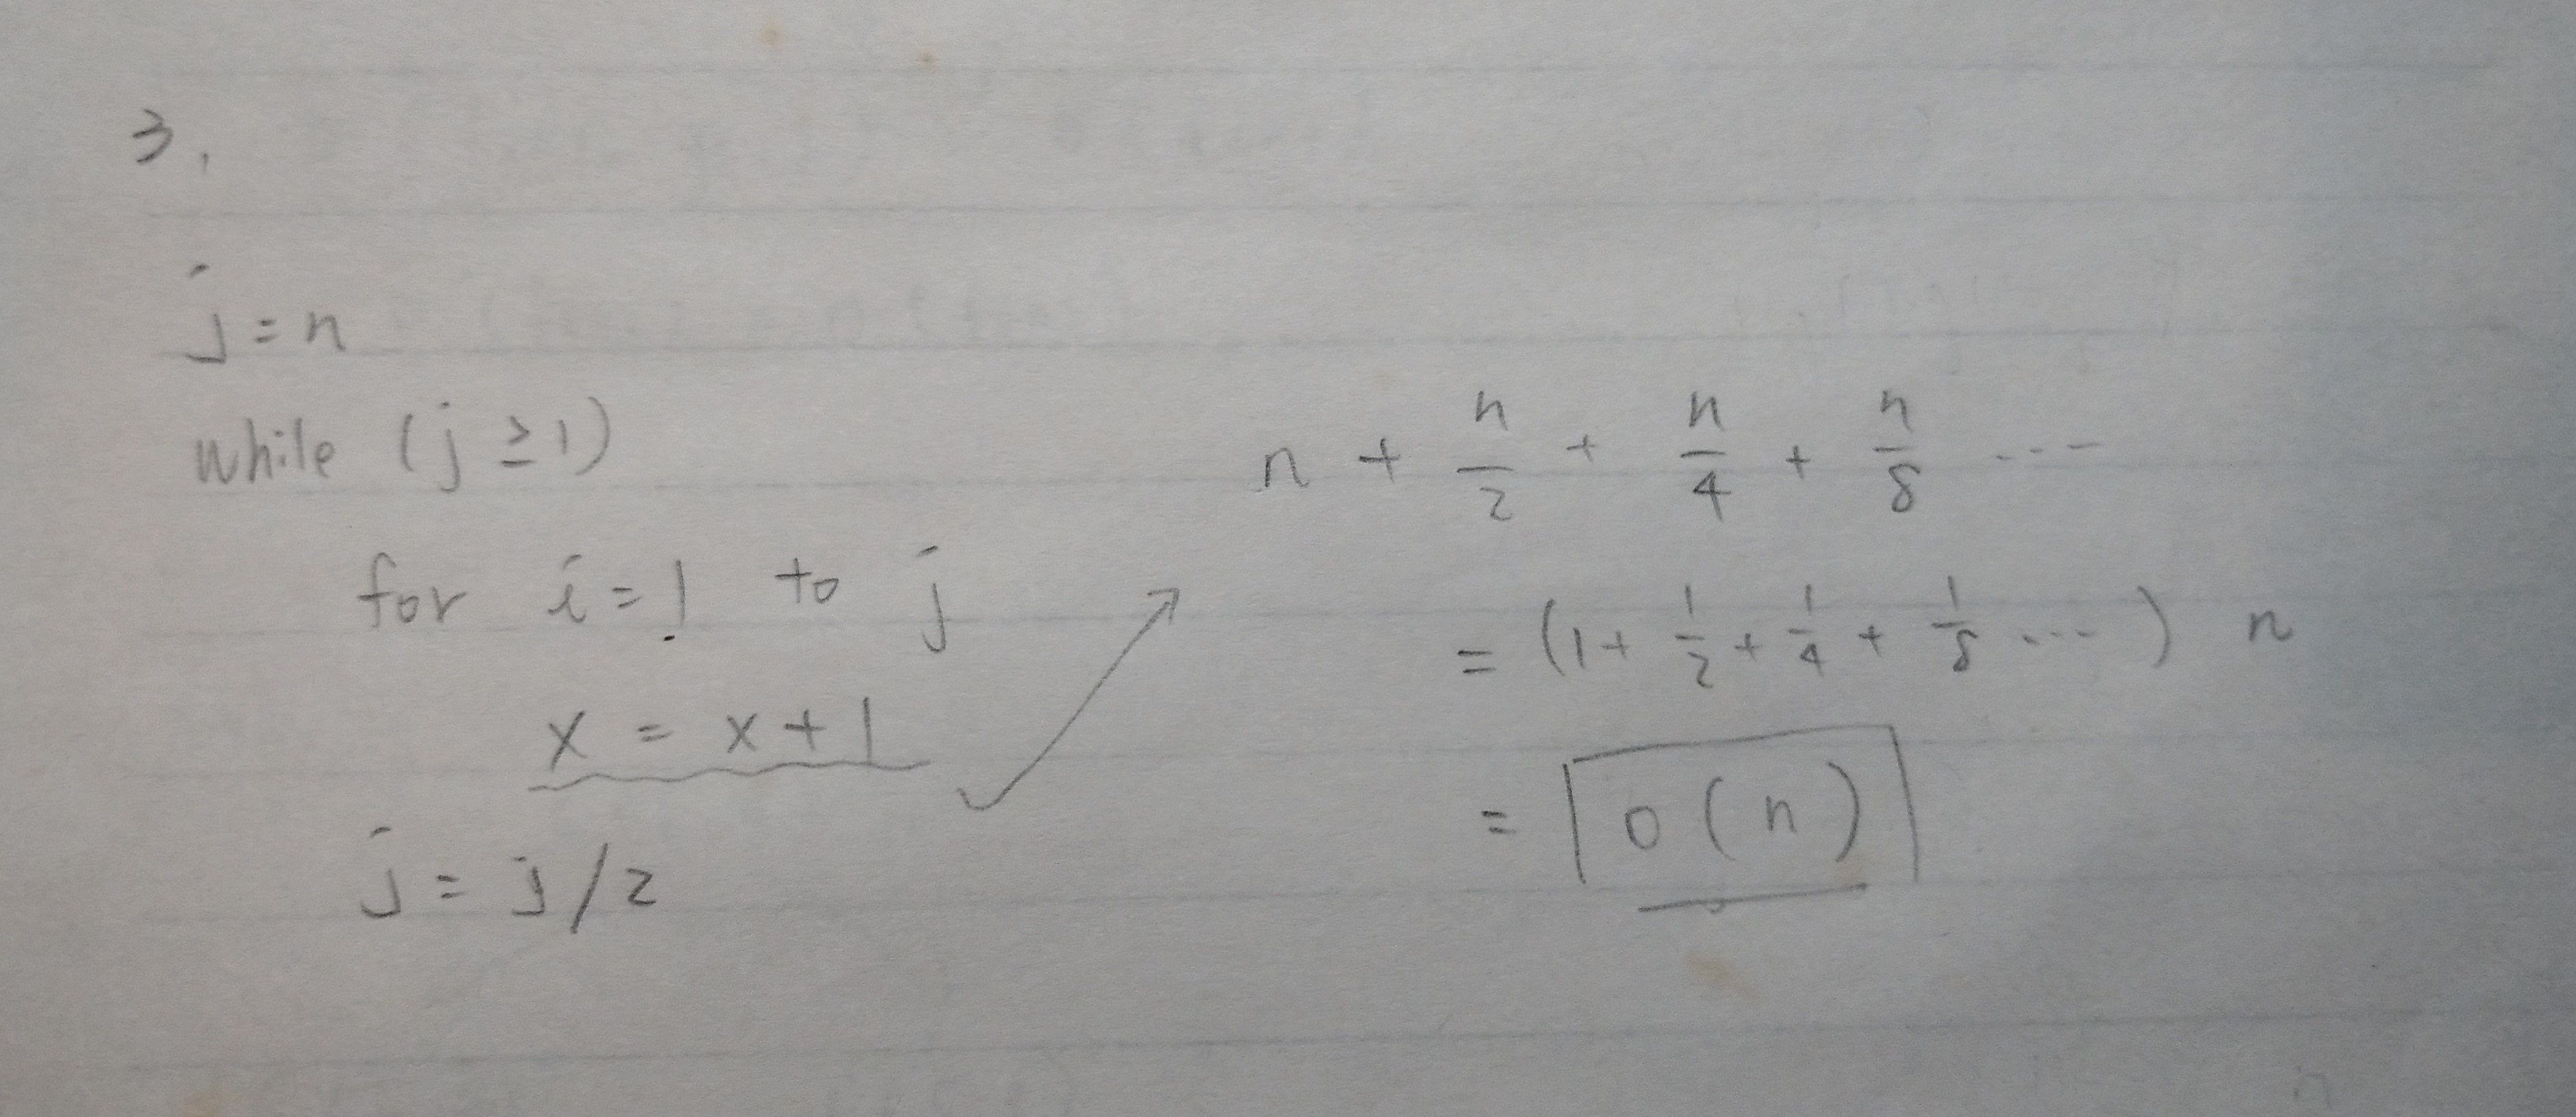 3.
j = n
while (j ≥ 1)
for i = 1 to j
x = x + 1
j = j / 2
n + n/2 + n/4 + n/8 ...
= (1 + 1/2 + 1/4 + 1/8 ...) n
= O(n)